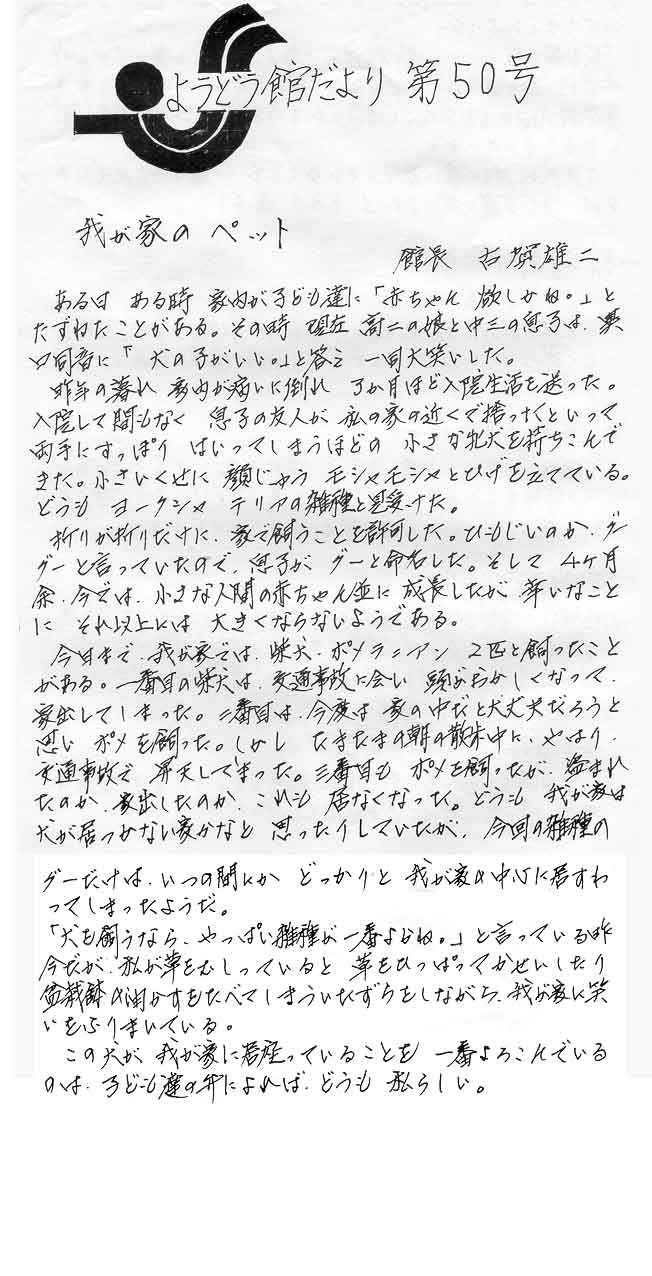 ようどう館だより 第50号
我が家の ペット
館長 古賀雄二
ある日 ある時 家内が子ども達に「赤ちゃん 欲しかね。」と
たずねたことがある。その時 現在 高二の娘と中三の息子は、異
口同音に「 犬の子がいい。」と答え 一同大笑いした。
昨年の暮れ 家内が病いに倒れ 3か月ほど入院生活を送った。
入院して間もなく 息子の友人が 私の家の近くで捨ったといって
両手にすっぽり はいってしまうほどの 小さな牝犬を持ちこんで
きた。小さいくせに 顔じゅう モシャモシャとひげを立てている。
どうも ヨークシャ テリアの雑種と見受けた。
折りが折りだけに、家で飼うことを許可した。ひもじいのか、グー
グーと言っていたので、息子が グーと命名した。そして 4ヶ月
余、今では、小さな人間の赤ちゃん並に 成長したが 幸いなこと
に それ以上には 大きくならないようである。
今日まで、我が家では、柴犬・ポメラニアン 2匹と飼ったこと
がある。一番目の柴犬は、交通事故に会い 頭がおかしくなって、
家出してしまった。二番目は、今度は 家の中だと大丈夫だろうと
思い ポメを飼った。しかし たまたまの朝の散歩中に、やはり、
交通事故で 昇天してしまった。三番目も ポメを飼ったが、盗まれ
たのか、家出したのか、これも 居なくなった。どうも 我が家は
犬が居つかない家かなと 思ったりしていたが、今回の雑種の
グーだけは、いつの間にか どっかりと 我が家の中心に居すわ
ってしまったようだ。
「犬を飼うなら、やっぱい雑種が一番よかね。」と言っている昨
今だが、私が草をむしっていると 草をひっぱってかせいしたり
盆栽鉢の油かすをたべてしまういたずらをしながら、我が家に笑
いをふりまいている。
この犬が 我が家に居座っていることを 一番よろこんでいる
のは、子ども達の弁によれば、どうも 私らしい。